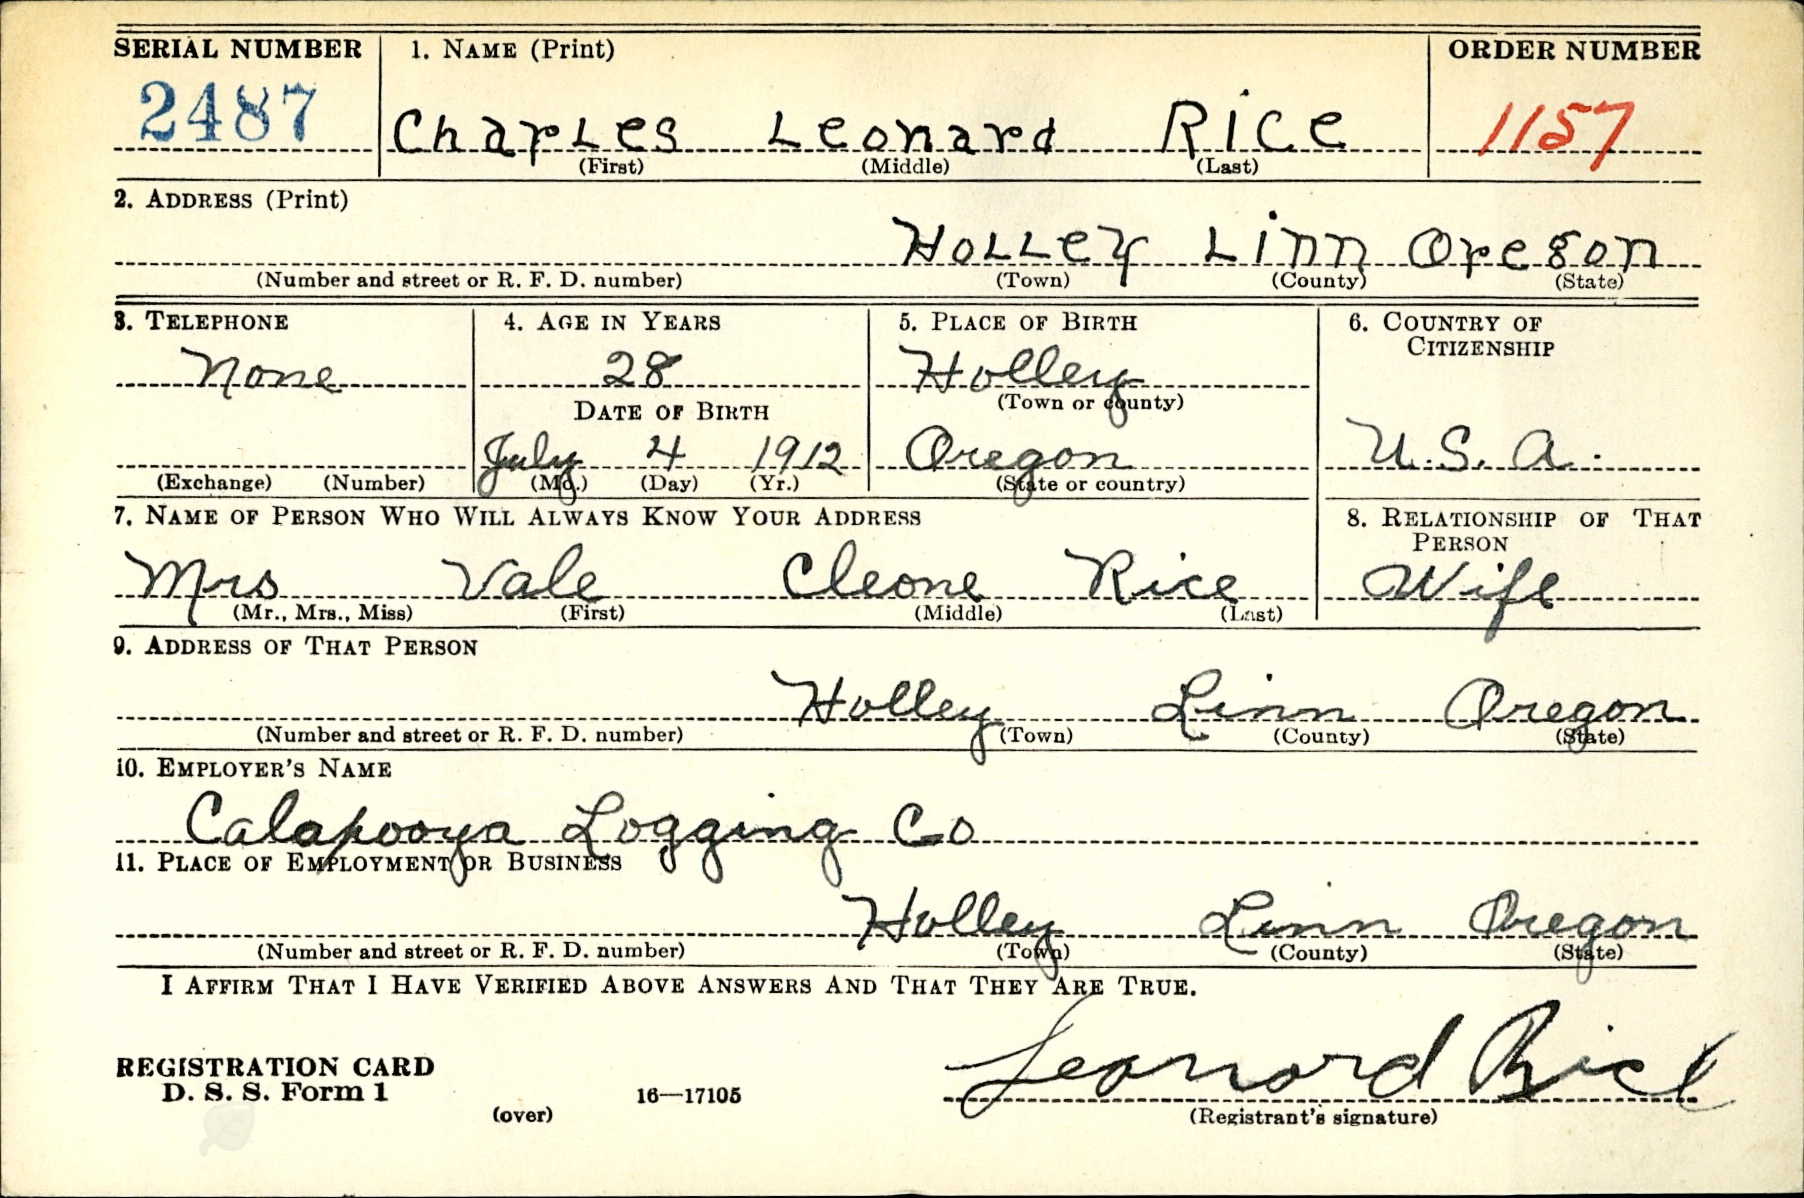 SERIAL NUMBER 1. NAME (Print) ORDER NUMBER
2487 Charles Leonard Rice 1157
(First) (Middle) (Last)
2. ADDRESS (Print)
Holley Linn Oregon
(Number and street or R. F. D. number) (Town) (County) (State)
3. TELEPHONE 4. AGE IN YEARS 5. PLACE OF BIRTH 6. COUNTRY OF CITIZENSHIP
None 28 Holley
DATE OF BIRTH (Town or county)
July 4 1912 Oregon U.S.A.
(Exchange) (Number) (Mo.) (Day) (Yr.) (State or country)
7. NAME OF PERSON WHO WILL ALWAYS KNOW YOUR ADDRESS 8. RELATIONSHIP OF THAT PERSON
Mrs Vale Cleone Rice Wife
(Mr., Mrs., Miss) (First) (Middle) (Last)
9. ADDRESS OF THAT PERSON
Holley Linn Oregon
(Number and street or R. F. D. number) (Town) (County) (State)
10. EMPLOYER'S NAME
Calapooya Logging Co
11. PLACE OF EMPLOYMENT OR BUSINESS
Holley Linn Oregon
(Number and street or R. F. D. number) (Town) (County) (State)
I AFFIRM THAT I HAVE VERIFIED ABOVE ANSWERS AND THAT THEY ARE TRUE.
REGISTRATION CARD Leonard Rice
D. S. S. Form 1 16—17105
(over) (Registrant's signature)